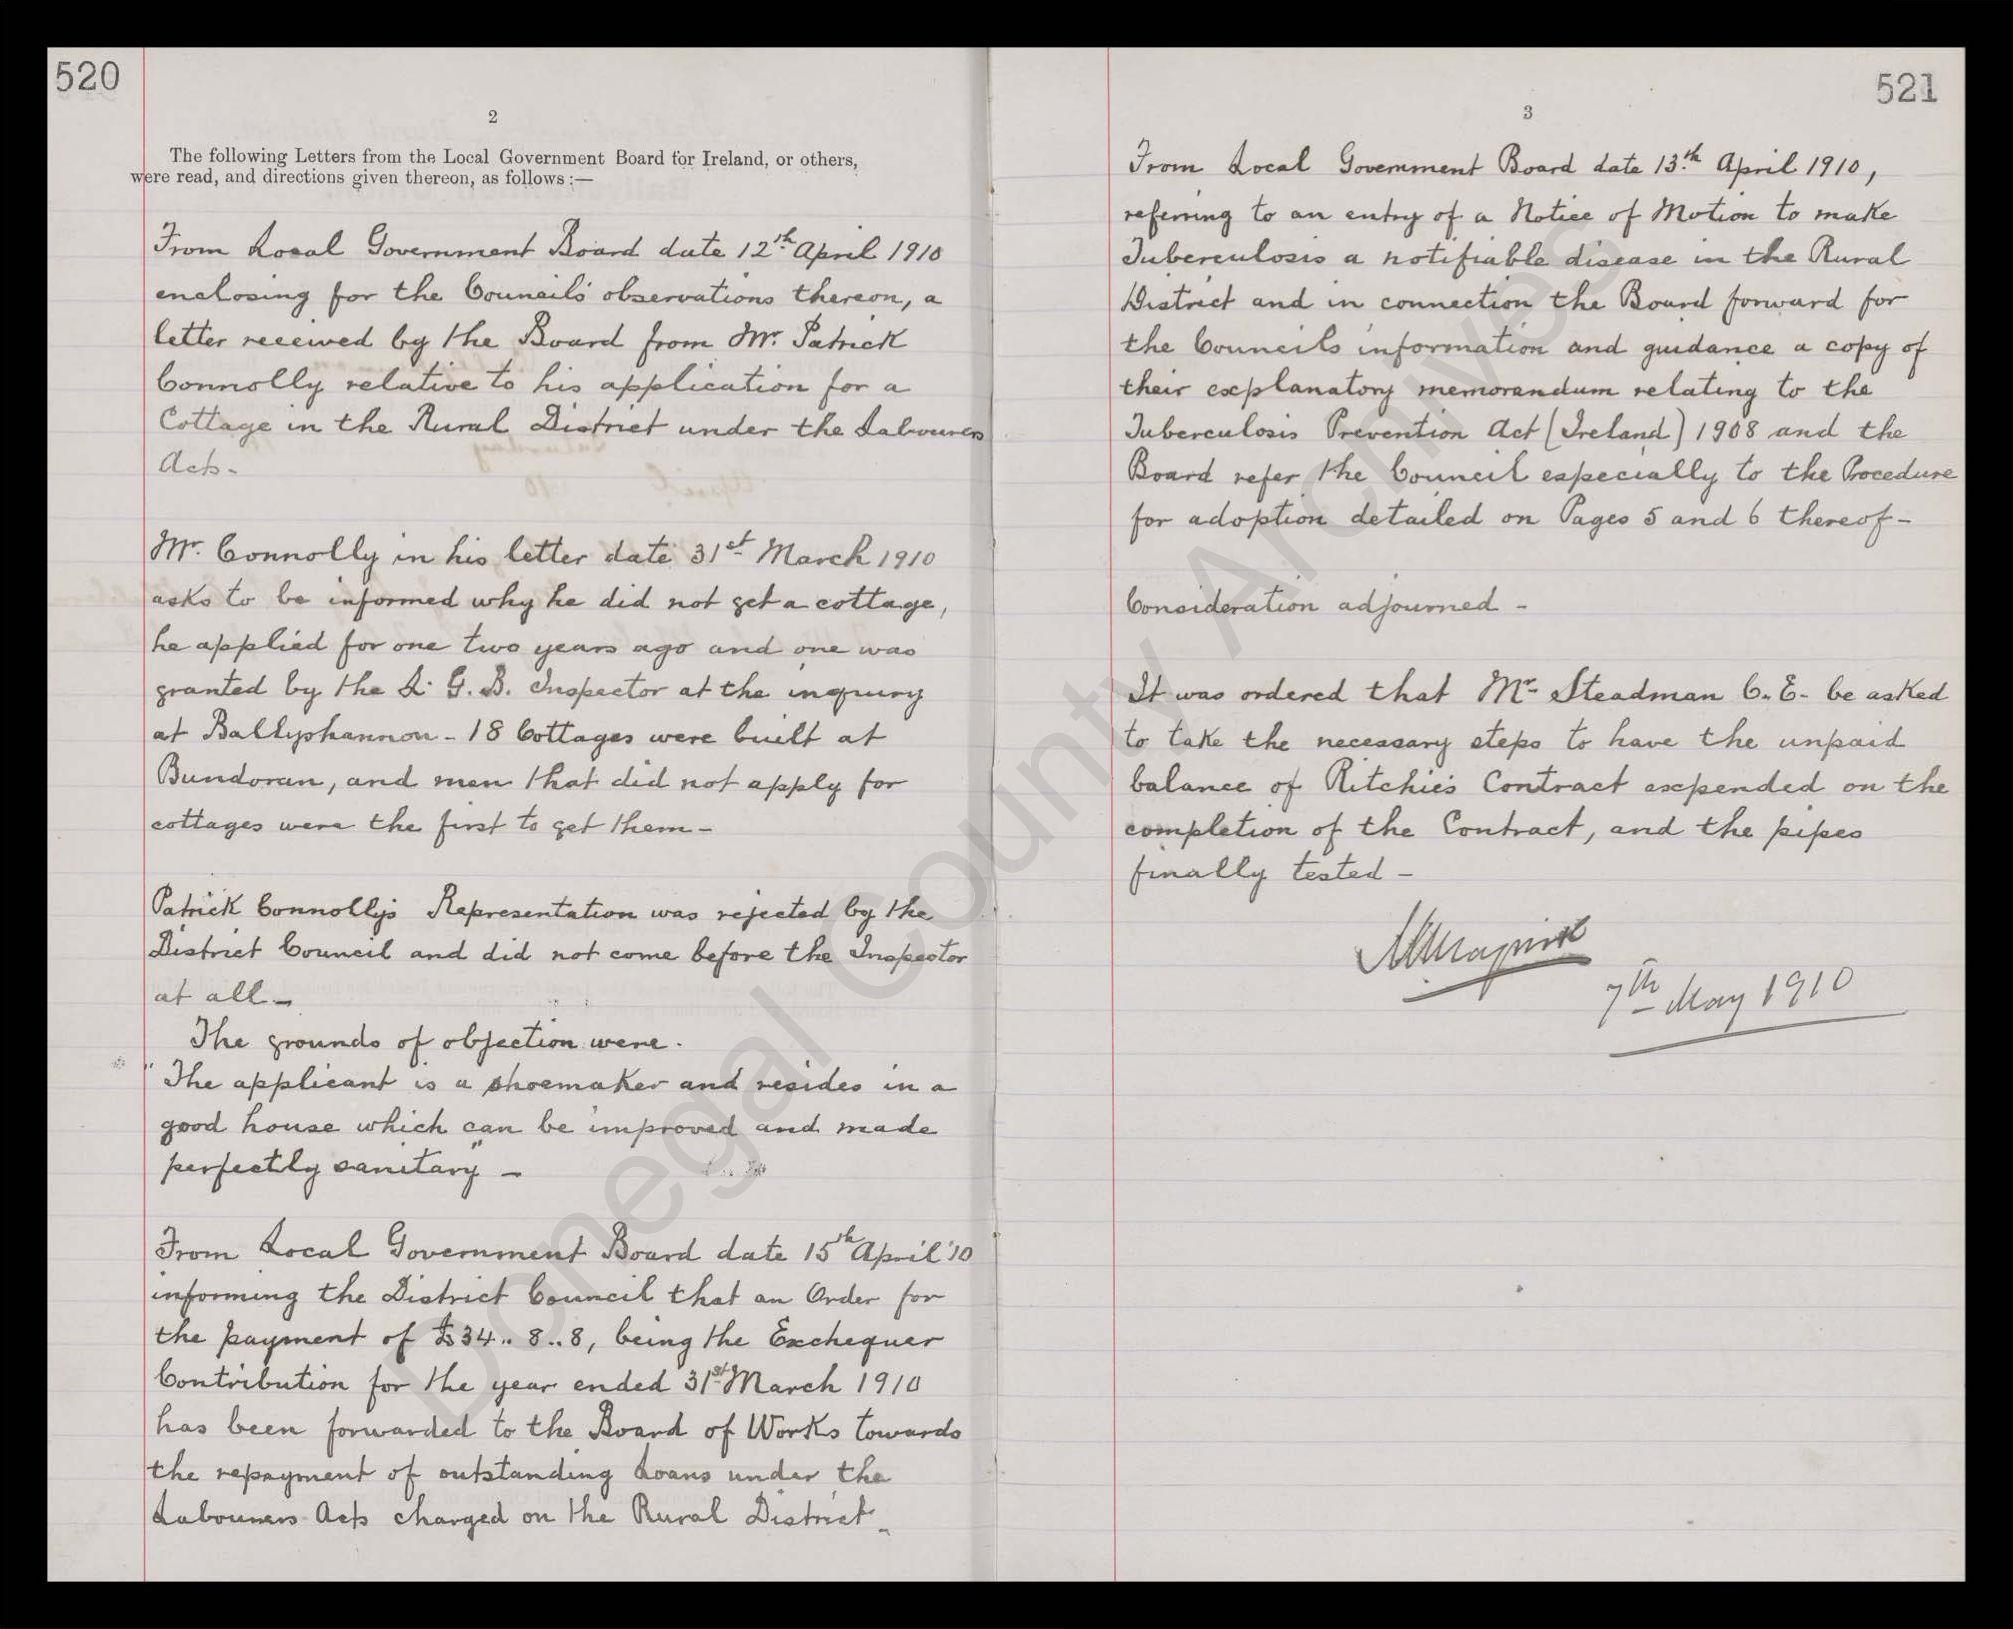 520
2
The following Letters from the Local Government Board for Ireland, or others,
were read, and directions given thereon, as follows :—
From Local Government Board date 12th April 1910
enclosing for the Council's observations thereon, a
letter received by the Board from Mr. Patrick
Connolly relative to his application for a
Cottage in the Rural District under the Labourers
Acts-
Mr. Connolly in his letter date 31st March 1910
asks to be informed why he did not get a cottage,
he applied for one two years ago and one was
granted by the L. G. B. Inspector at the inquiry
at Ballyshannon - 18 Cottages were built at
Bundoran, and men that did not apply for
cottages were the first to get them -
Patrick Connolly's Representation was rejected by the
District Council and did not come before the Inspector
at all -
The grounds of objection were.
"The applicant is a shoemaker and resides in a
good house which can be improved and made
perfectly sanitary" -
From Local Government Board date 15th April '10
informing the District Council that an Order for
the payment of £34..8..8, being the Exchequer
Contribution for the year ended 31st March 1910
has been forwarded to the Board of Works towards
the repayment of outstanding Loans under the
Labourers Acts charged on the Rural District -
521
3
From Local Government Board date 13th April 1910,
referring to an entry of a Notice of Motion to make
Tuberculosis a notifiable disease in the Rural
District and in connection the Board forward for
the Councils information and guidance a copy of
their explanatory memorandum relating to the
Tuberculosis Prevention Act (Ireland) 1908 and the
Board refer the Council especially to the Procedure
for adoption detailed on Pages 5 and 6 thereof -
Consideration adjourned -
It was ordered that Mr. Steadman C. E. be asked
to take the necessary steps to have the unpaid
balance of Ritchie's Contract expended on the
completion of the Contract, and the pipes
finally tested -
7th May 1910
Donegal County Archives